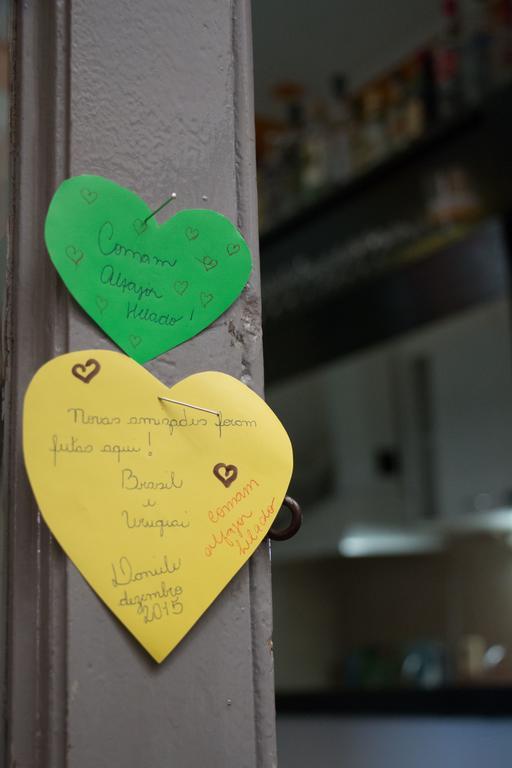 Comam
Alfajor
Helado !
Novas amizades foram
feitas aqui !
Brasil
e
Uruguai
comam
alfajor
helado
Danile
dezembro
2015